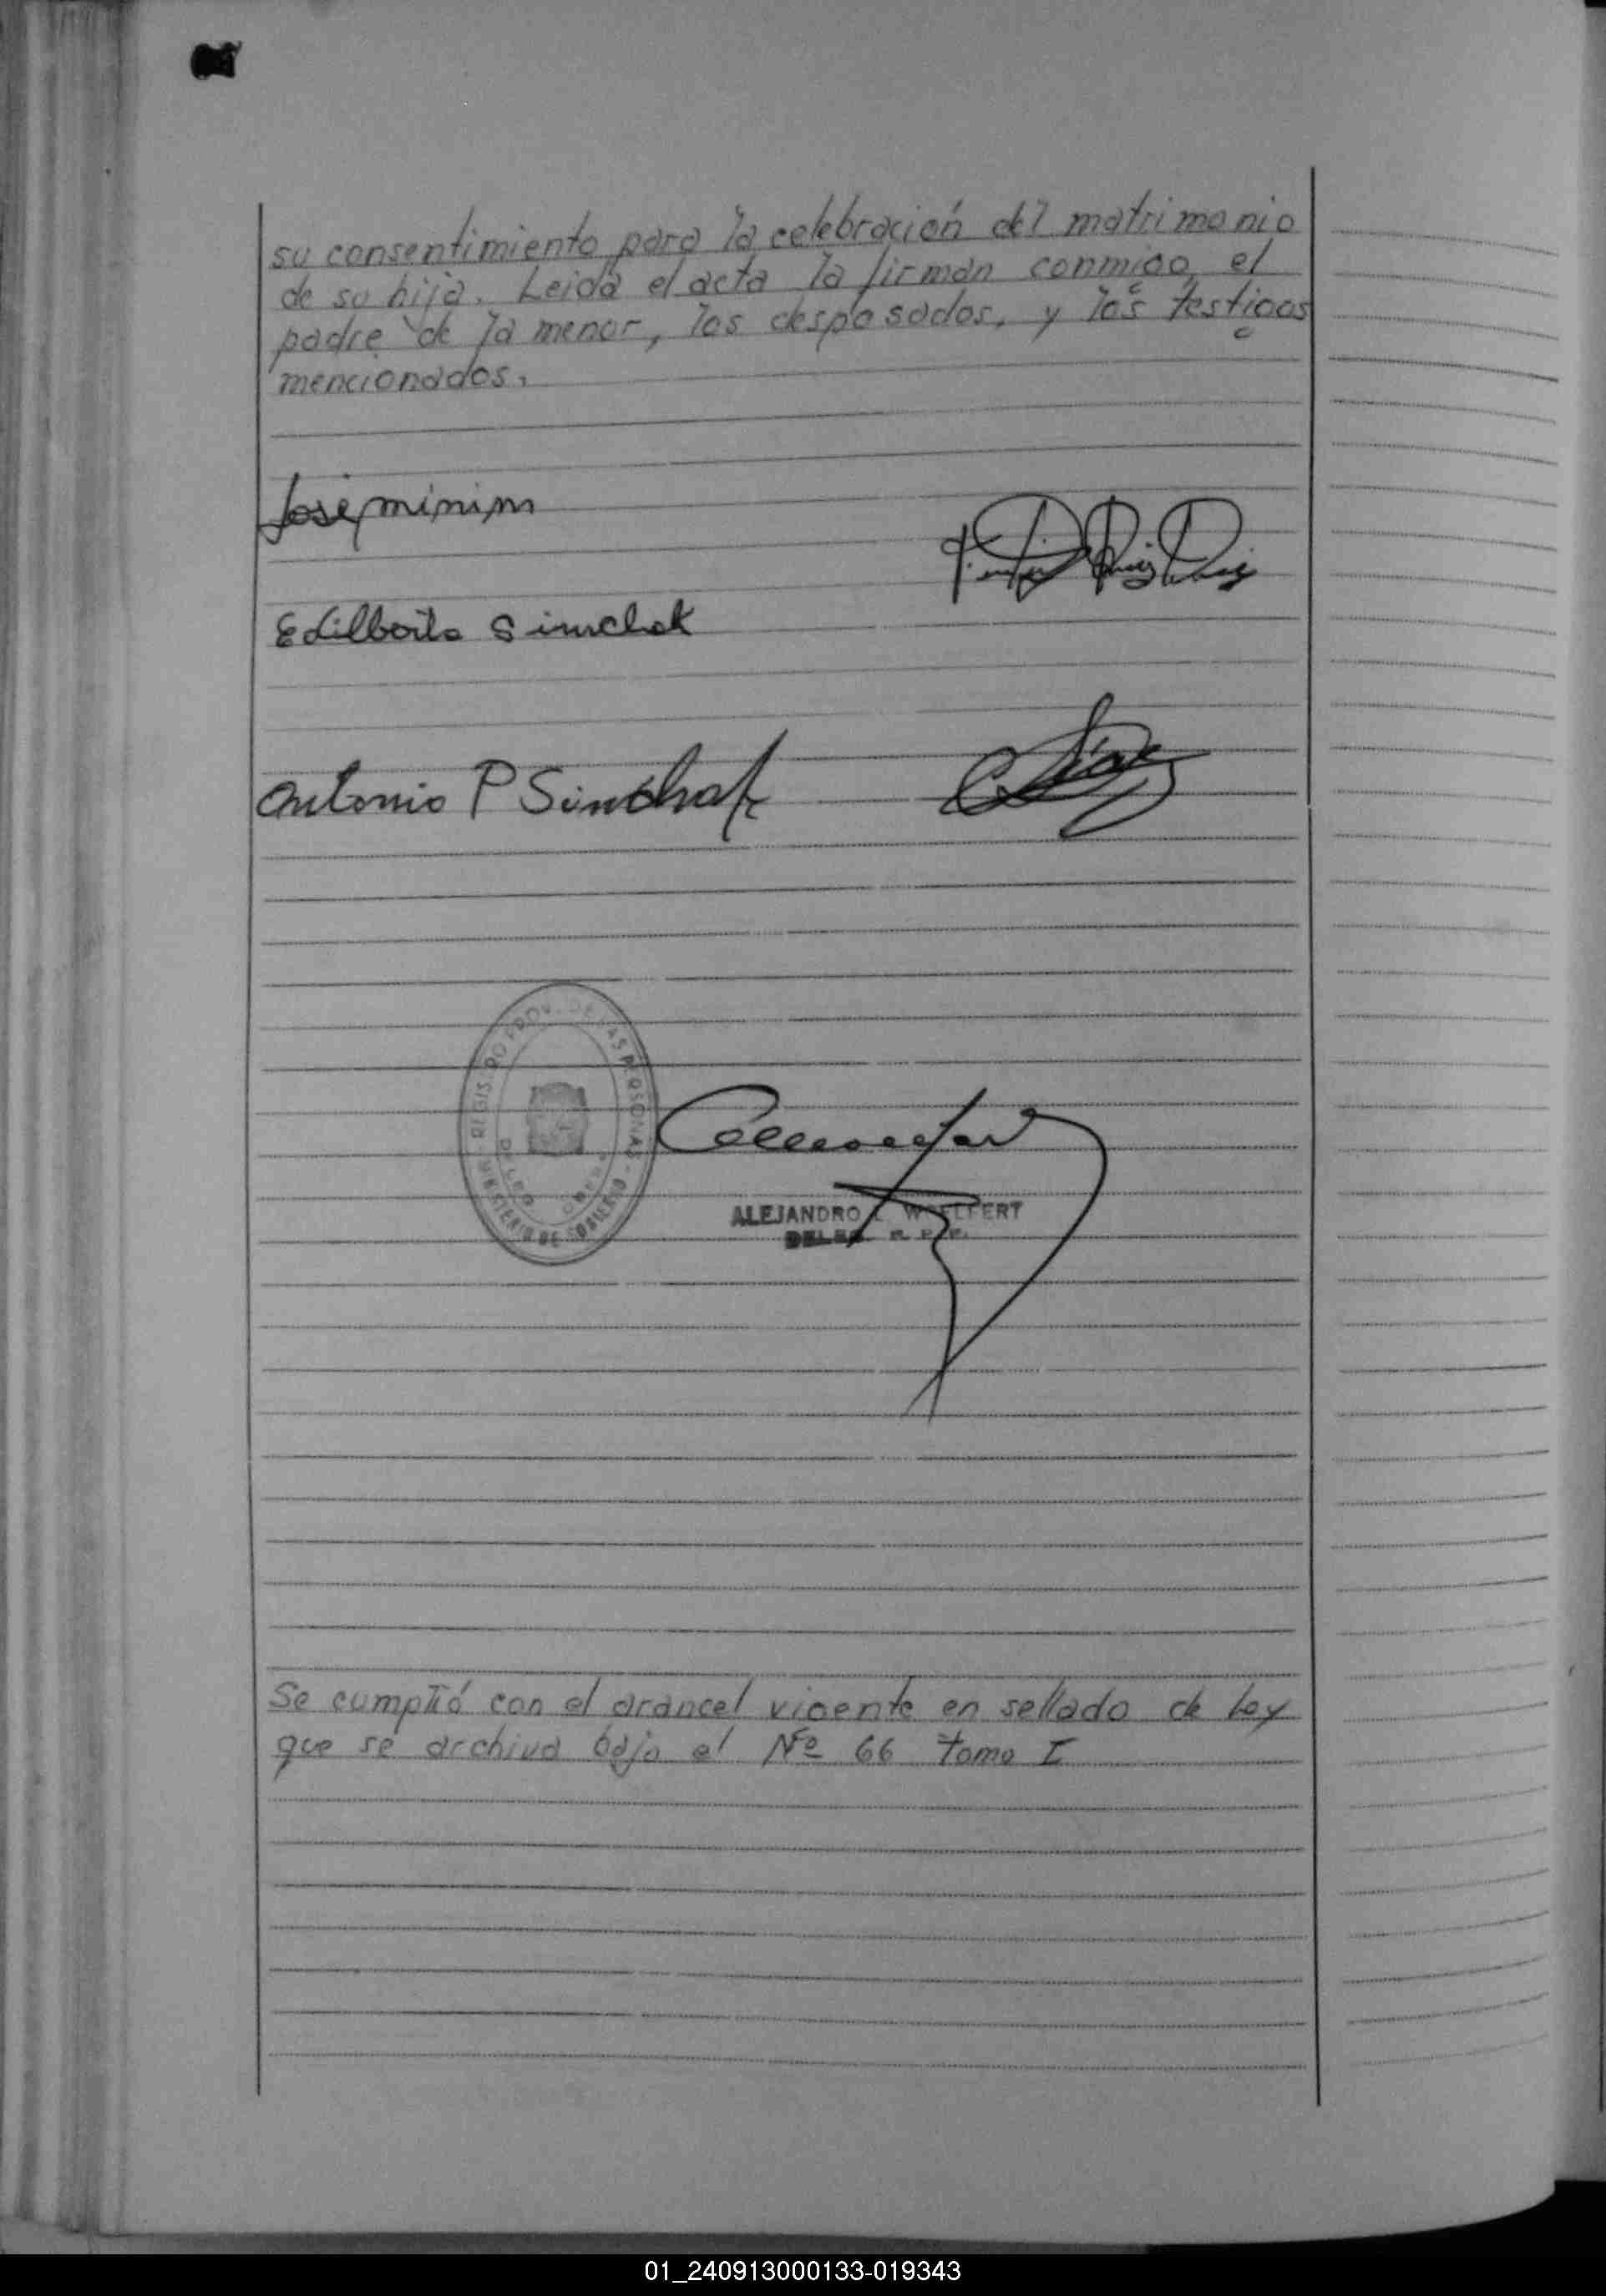 su consentimiento para la celebración del matrimonio
de su hija. Leida el acta la firman conmigo, el
padre de la menor, los desposados, y los testigos
mencionados.
José minim
Edilberto Simchak
Antonio P Simchak
Díaz
REGISTRO PROV. DE LAS PERSONAS - MINISTERIO DE GOBIERNO
ALEJANDRO E. WOELFERT
DELEG. R. P. P.
Se cumplió con el arancel vigente en sellado de Ley
que se archiva bajo el Nº 66 tomo I
01_240913000133-019343